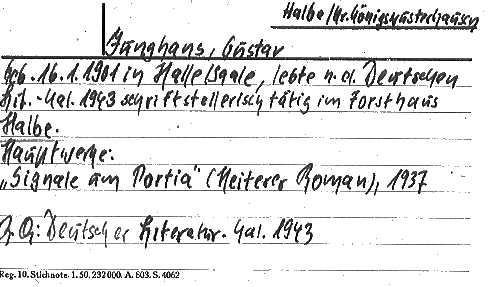 Halbe/Kr. Königswusterhausen
Junghans, Gustav
Geb. 16.1.1901 in Halle/Saale, lebte n. d. Deutschen
Lit.-Kal. 1943 schriftstellerisch tätig im Forsthaus
Halbe.
Hauptwerke:
„Signale um Portia" (Heiterer Roman), 1937
Qu: Deutscher Literatur-Kal. 1943
Reg. 10. Stichnote. 1. 50. 232000. A. 803. S. 4062